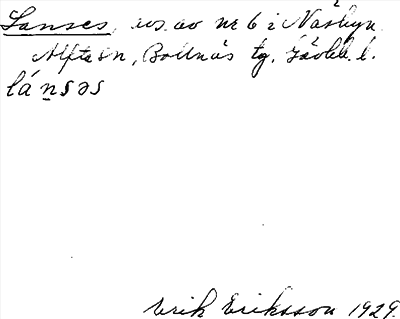 Lanses, us. av nr 6 i Näsbyn
Alfta sn, Bollnäs tg. Gävleb. l.
lánsəs
Erik Eriksson 1929.